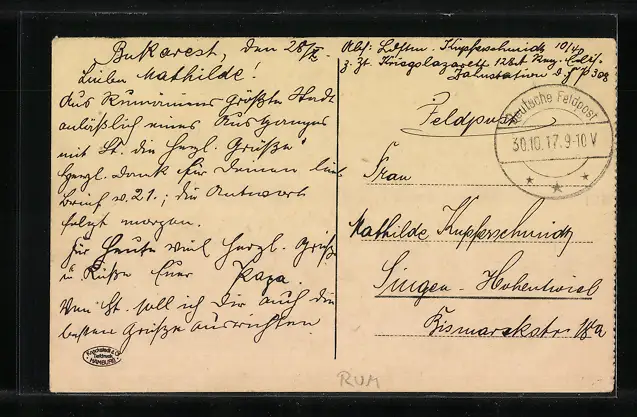 Bukarest, den 28/X.
Lieben Mathilde!
Aus Rumäniens größter Stadt
anläßlich eines Ausganges
mit St. die herzl. Grüße
Herzl. Dank für Deinen lieb.
Brief v. 21.; die Antwort
folgt morgen.
Für heute viel herzl. Grüße
u. Küße Euer Papa.
Von St. soll ich Dir auch die
besten Grüße ausrichten.
HAMBURG
Abs: Ldstm. Kupferschmidt 10/40
z. Zt. Kriegslazarett
Zahnstation D. F. P. 308
Feldpost
Deutsche Feldpost
30.10.17.9-10V
Frau
Mathilde Kupferschmidt
Singen - Hohentwiel
Bismarckstr.
RUM